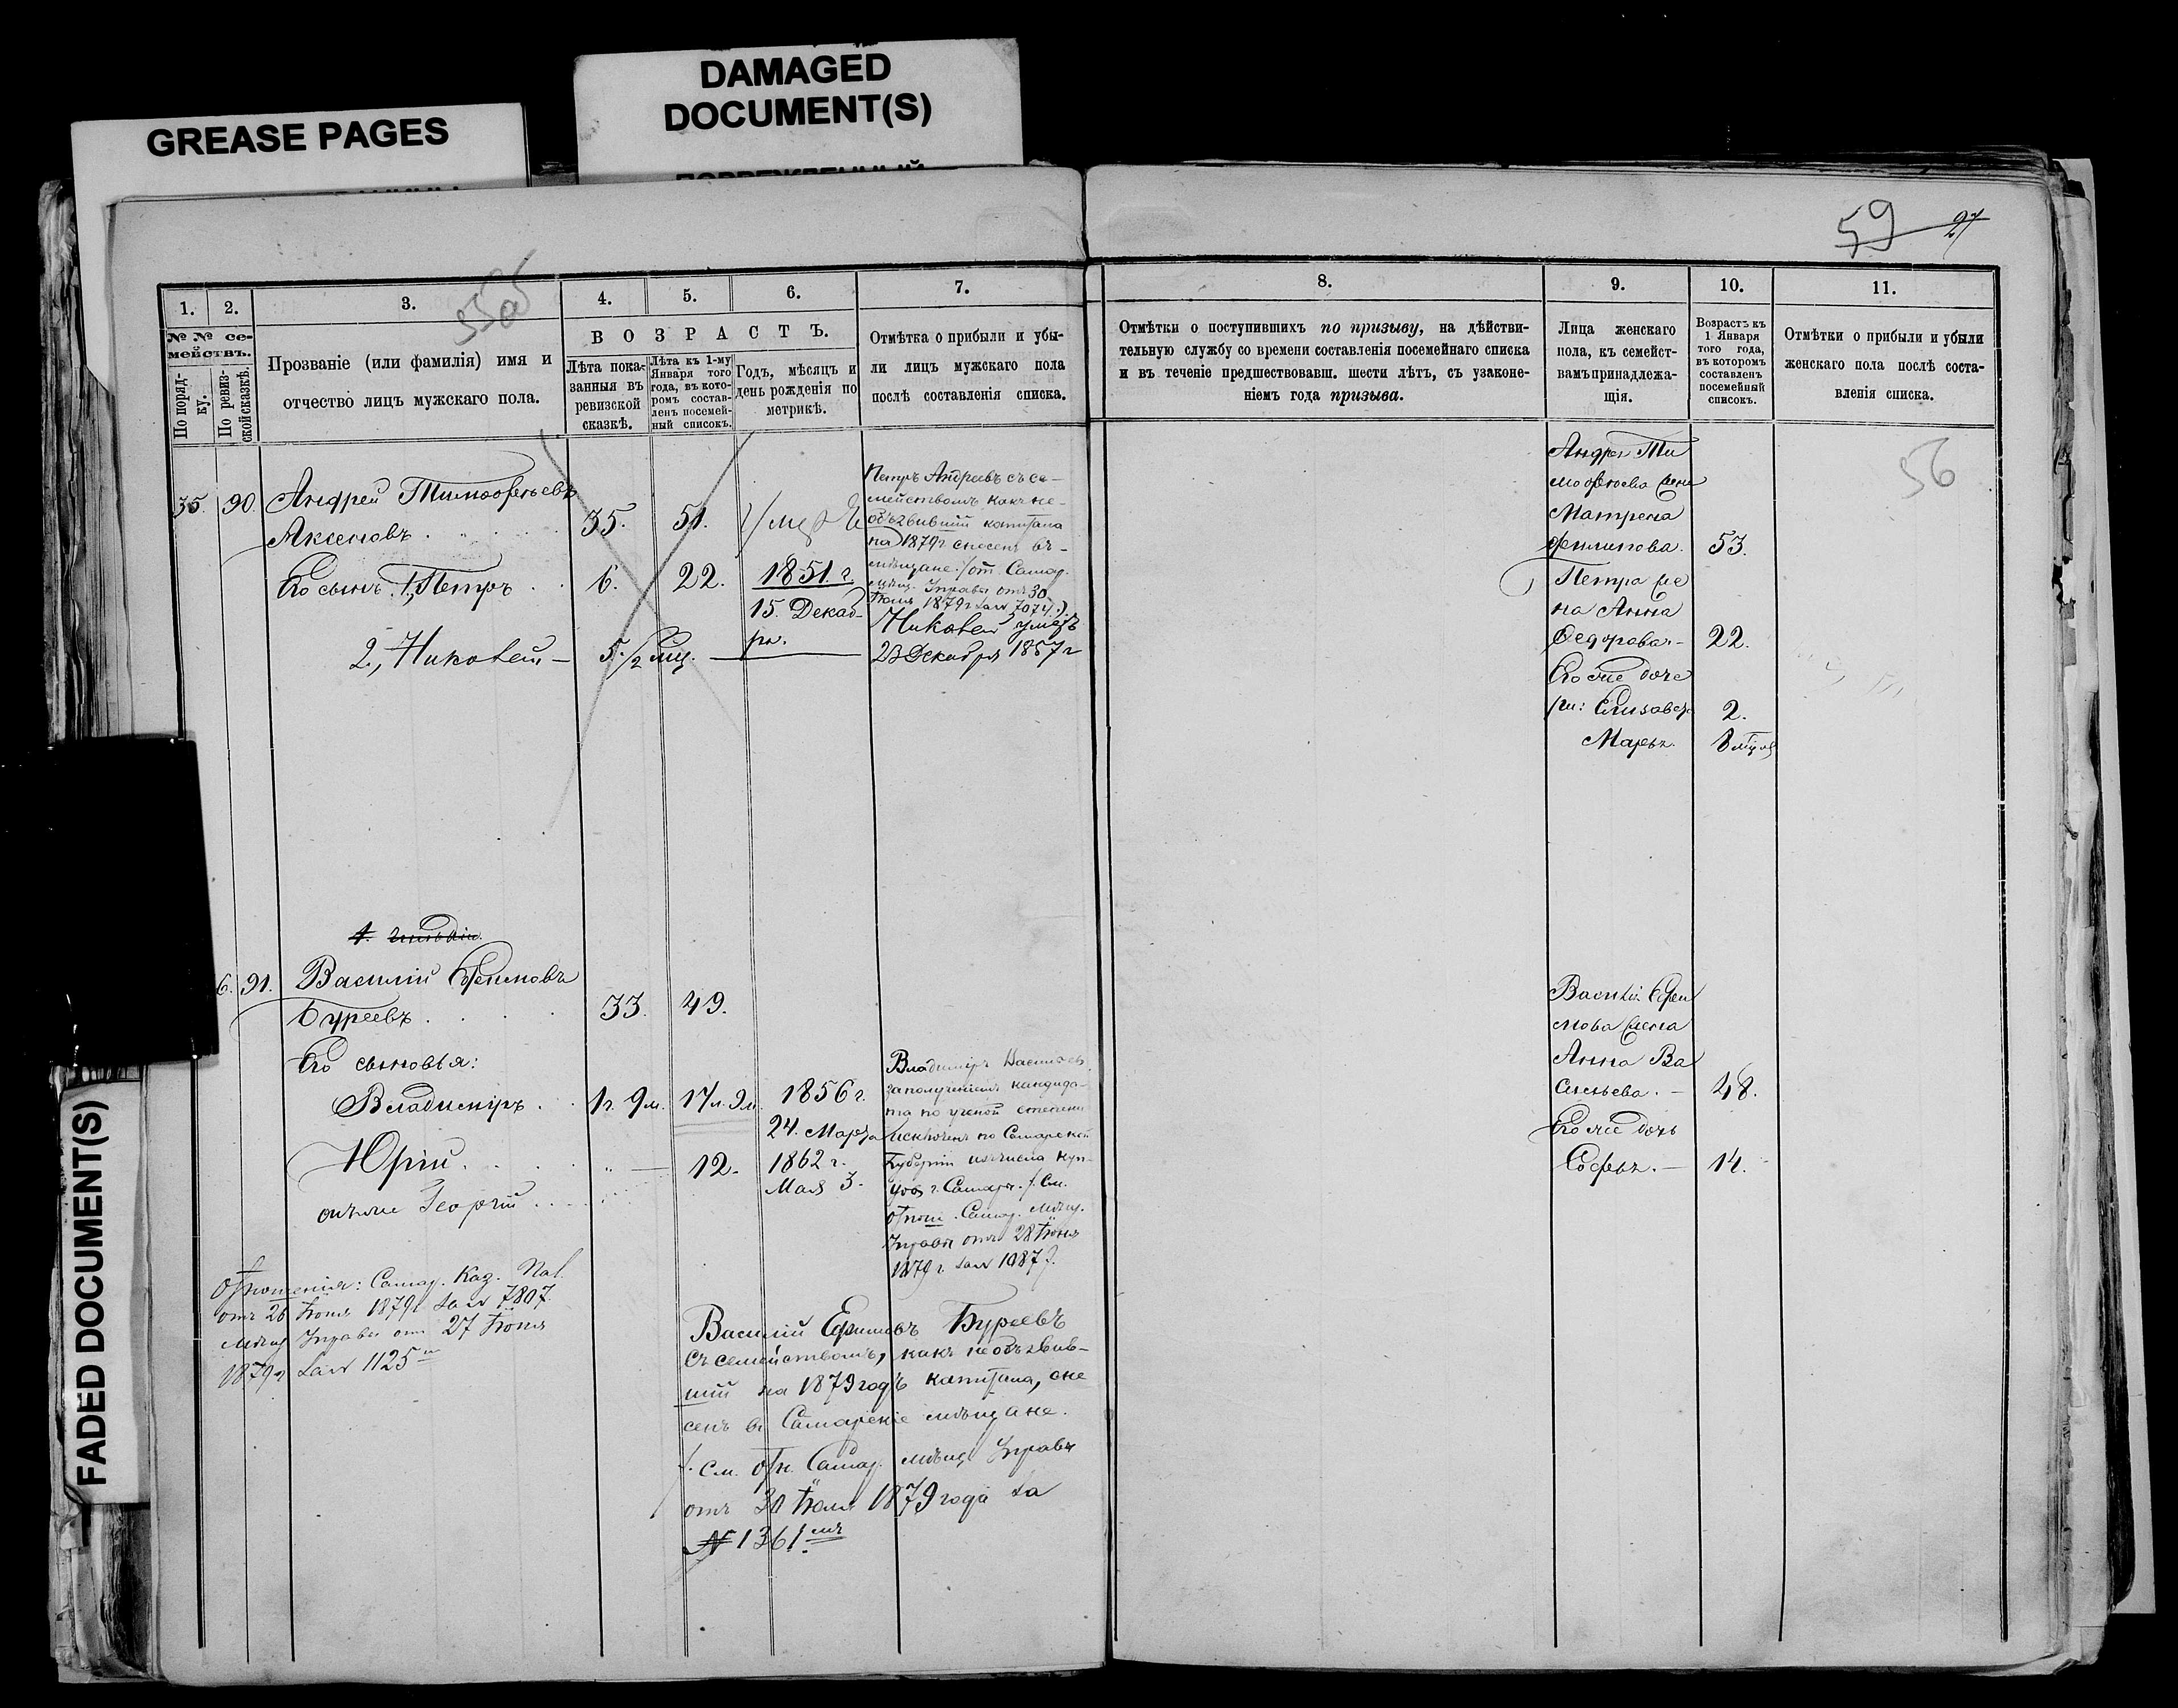 DAMAGED
DOCUMENT(S)
GREASE PAGES
FADED DOCUMENT(S)
59 27
1. 2. 3. 4. 5. 6. 7.
№ № се-
мействъ.
По поряд-
ку.
По ревиз-
ской сказкѣ.
Прозваніе (или фамилія) имя и
отчество лицъ мужскаго пола.
ВОЗРАСТЪ.
Лѣта пока-
занныя въ
ревизской
сказкѣ.
Лѣта къ 1-му
Января того
года, въ кото-
ромъ состав-
ленъ посемей-
ный списокъ.
Годъ, мѣсяцъ и
день рожденія по
метрикѣ.
Отмѣтка о прибыли и убы-
ли лицъ мужскаго пола
послѣ составленія списка.
35. 90. Андрей Тимофеевъ
Аксеновъ 35. 51.
Его сынъ 1, Петръ 6. 22. 1851 г.
15. Декаб-
ря.
2, Николай — 5 1/2 мц.
Петръ Андреевъ съ се-
мействомъ какъ не-
объявившій капитала
на 1879 г снесенъ въ
мѣщане. (от. Самар.
мѣщ. Управы отъ 30
за № 7074.)
Николай умеръ
23 Декабря 1857 г
1. гильдіи.
6. 91. Василій Ефимовъ
Буреевъ 33. 49.
Его сыновья:
Владиміръ 1 г. 9 м. 17 л. 9 м. 1856 г.
24. Марта
Юрій „ — 12. 1862 г.
Мая 3.
онъ же Георгій
Владиміръ Васильевъ
за полученіемъ кандида-
та по ученой степени
исключенъ по Самарской
Губерніи изъ числа куп-
цовъ г. Самары. (См.
отнош. Самар. мѣщ.
Управы отъ 28 Іюня
1879 г за № 1087).
Отношенія: Самар. Каз. Пал.
отъ 26 Іюня 1879 г за № 7807.
Мѣщ Управы отъ 27 Іюня
1879 г за № 1125
Василій Ефимовъ Буреевъ
съ семействомъ, какъ необъявив-
шій на 1879 годъ капитала, сне
сенъ въ Самарскіе мѣщане.
(См. отн. Самар. мѣщ. Управы
отъ 30 1879 года за
№ 1361
8. 9. 10. 11.
Отмѣтки о поступившихъ по призыву, на дѣйстви-
тельную службу со времени составленія посемейнаго списка
и въ теченіе предшествовавш. шести лѣтъ, съ узаконе-
ніемъ года призыва.
Лица женскаго
пола, къ семейст-
вамъ принадлежа-
щія.
Возрастъ къ
1 Января
того года,
въ которомъ
составленъ
посемейный
списокъ.
Отмѣтки о прибыли и убыли
женскаго пола послѣ соста-
вленія списка.
56
Андрея Ти
мофеева жена
Матрена
Филипова. 53.
Петра же
на Анна
Федорова — 22.
Его же доче
ри: Елизавета 2.
Марья.
Василія Ефи
мова жена
Анна Ва
сильева. — 48.
Его же дочь
Софья. — 14.